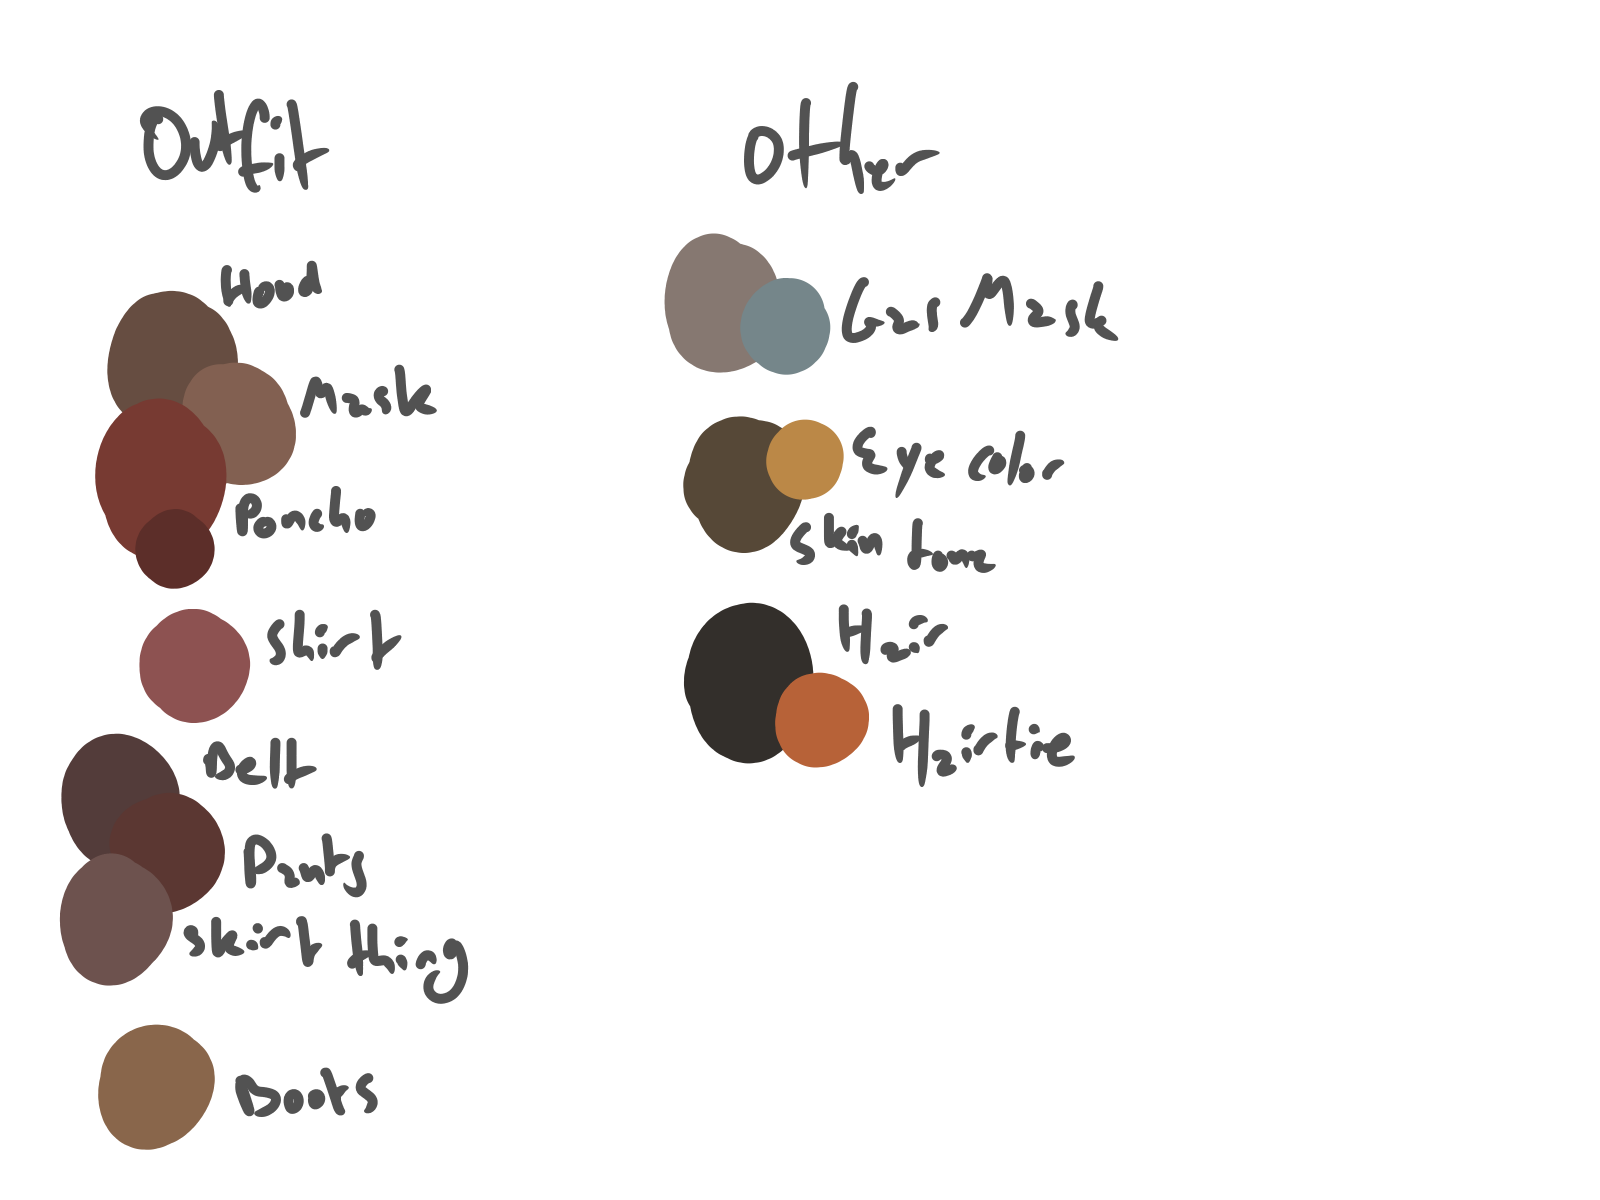 Outfit
Hood
Mask
Poncho
Shirt
Belt
Pants
skirt thing
Boots
Other
Gas Mask
Eye color
skin tone
Hair
Hairtie